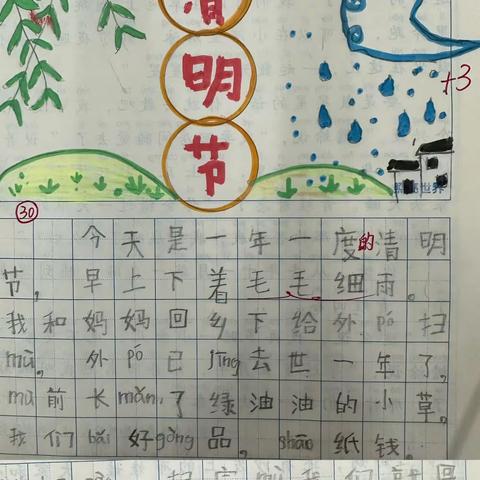 清
明
节
+3
30
今天是一年一度的清明
节，早上下着毛毛细雨。
我和妈妈回乡下给外pó扫
mù。外pó已jīng去世一年了，
mù前长mǎn了绿油油的小草，
我们bǎi好gòng品，shāo纸钱。